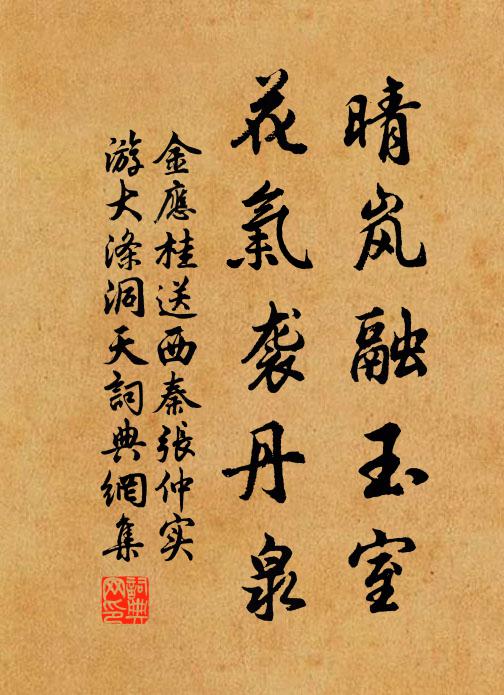 晴岚融玉室
花氣袭丹泉
金應桂送西秦張仲实
游大涤洞天詞典網集
詞典网印